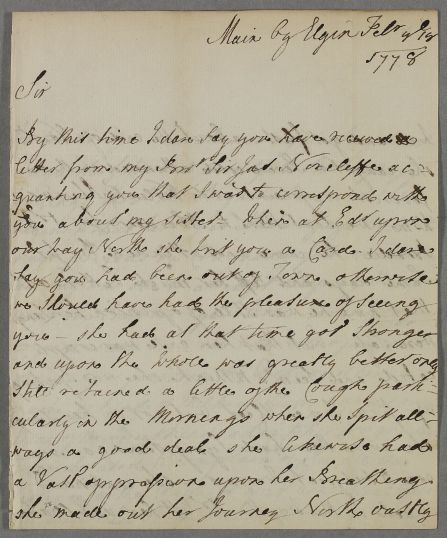 Main by Elgin Febr y
1778
Sir
By this time I dare say you have received a
letter from my Frnd Sir Jas Norcliffe ac-
quanting you that I was to correspond with
you about my Sister. When at Edr upon
our way North she sent you a Card. I dare
Say you had been out of Town otherwise
we Should have had the pleasure of Seeing
you – She had at that time got Stronger
and upon the Whole was greatly better only
Still retained a little of the Cough parti-
cularly in the Mornings when she Spit all-
ways a good deal she likewise had
a Vast oppression upon her Breathing
she made out her Journey North vastly